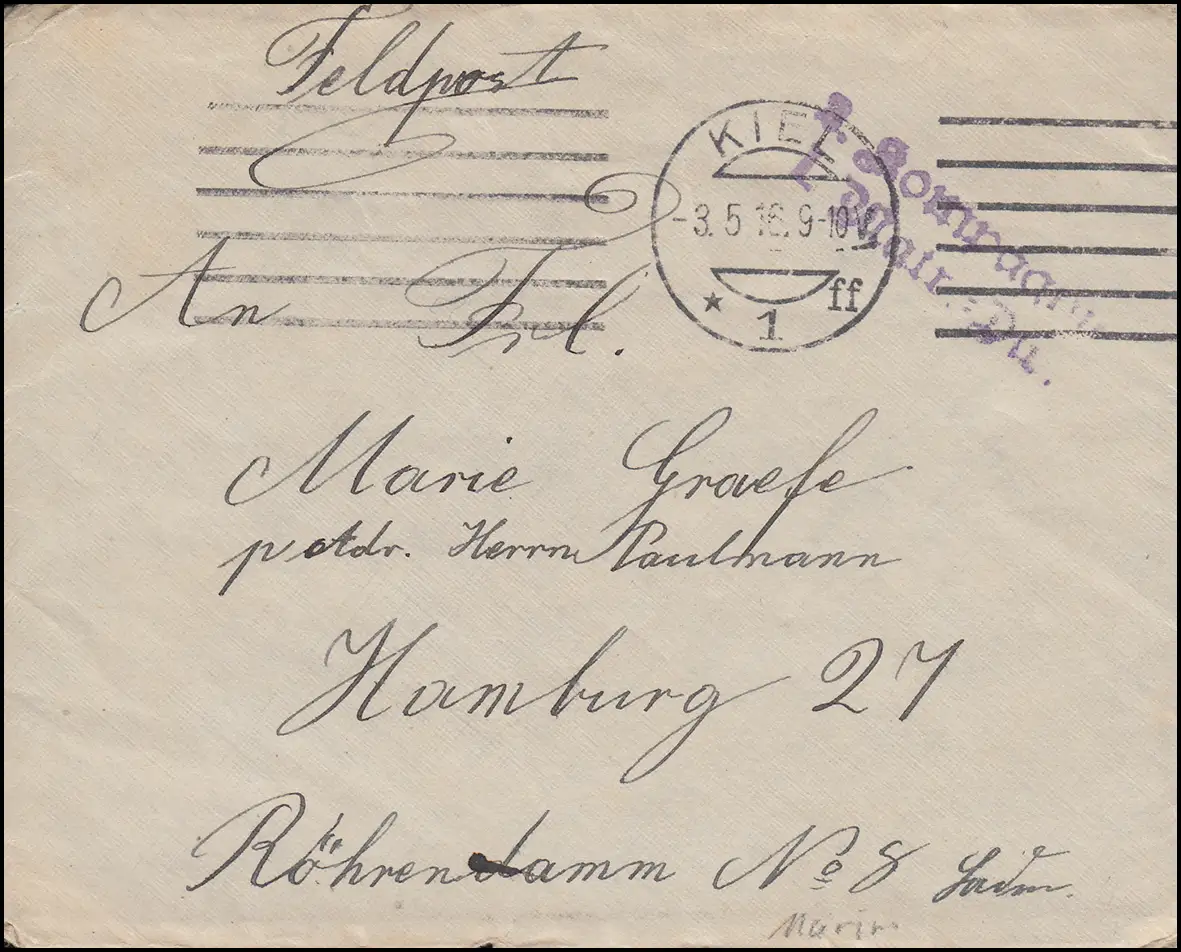 Feldpost
KIEL
-3.5.16.9-10V.
* 1 ff
An Frl.
Marie Graefe
p Adr. Herrn Paulmann
Hamburg 27
Röhrendamm No 8
Marin